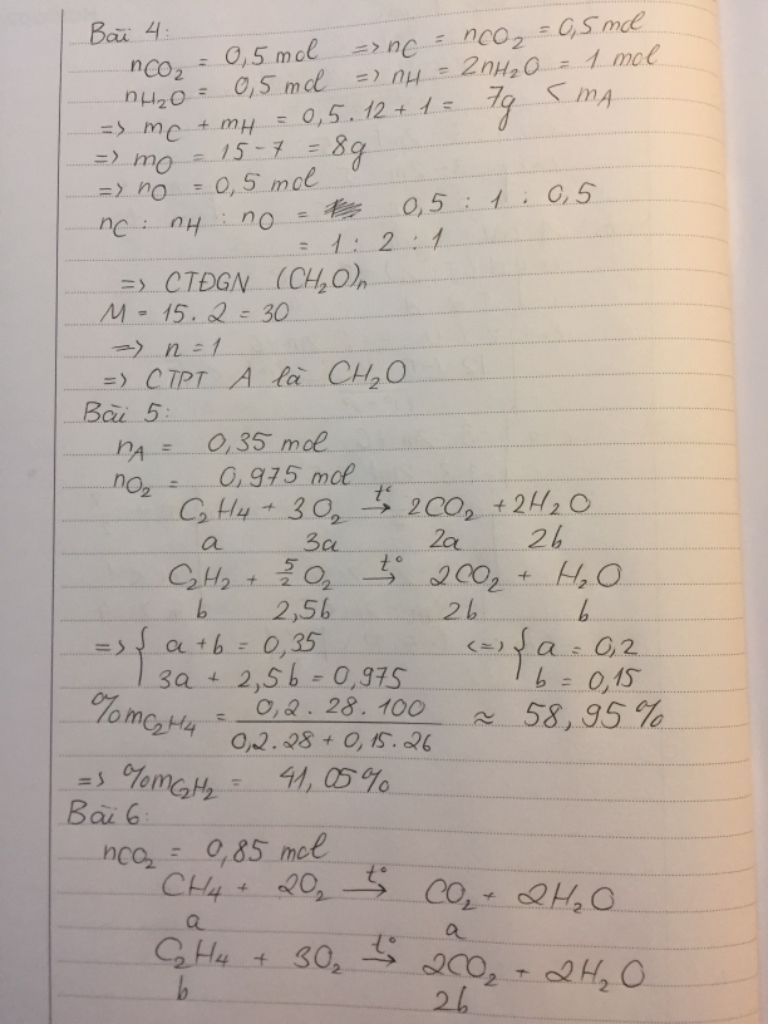 Bài 4:
nCO₂ = 0,5 mol => nC = nCO₂ = 0,5 mol
nH₂O = 0,5 mol => nH = 2nH₂O = 1 mol
=> mC + mH = 0,5.12 + 1 = 7g < mA
=> mO = 15 - 7 = 8g
=> nO = 0,5 mol
nC : nH : nO = 0,5 : 1 : 0,5
= 1 : 2 : 1
=> CTĐGN (CH₂O)n
M = 15.2 = 30
=> n = 1
=> CTPT A là CH₂O
Bài 5:
nA = 0,35 mol
nO₂ = 0,975 mol
C₂H₄ + 3O₂ →t° 2CO₂ + 2H₂O
a 3a 2a 2b
C₂H₂ + 5/2 O₂ →t° 2CO₂ + H₂O
b 2,5b 2b b
=> { a + b = 0,35 <=> { a = 0,2
3a + 2,5b = 0,975 b = 0,15
%mC₂H₄ = 0,2.28.100 / 0,2.28 + 0,15.26 ≈ 58,95%
=> %mC₂H₂ = 41,05%
Bài 6:
nCO₂ = 0,85 mol
CH₄ + 2O₂ →t° CO₂ + 2H₂O
a a
C₂H₄ + 3O₂ →t° 2CO₂ + 2H₂O
b 2b